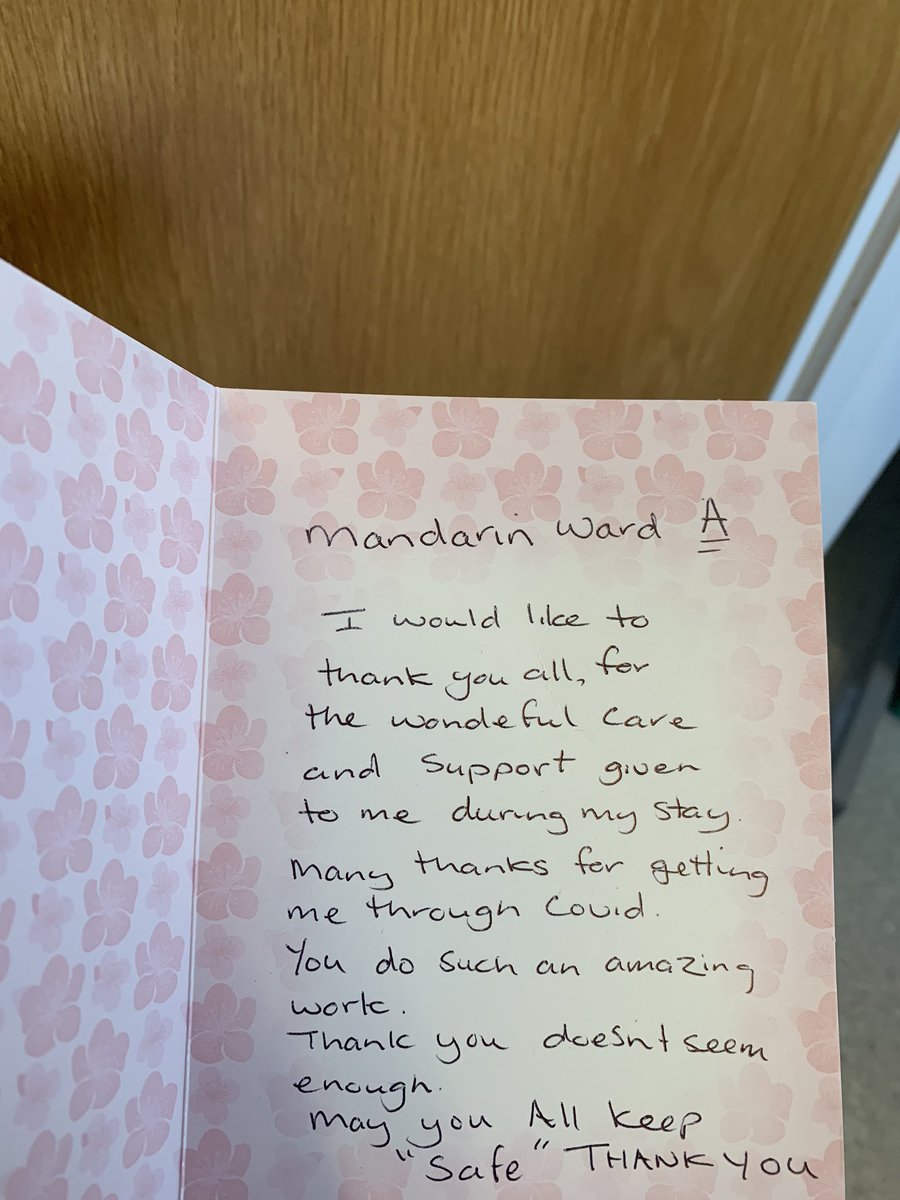 Mandarin Ward A
I would like to
thank you all, for
the wondeful care
and support given
to me during my stay.
Many thanks for getting
me through Covid.
You do such an amazing
work.
Thank you doesn't seem
enough.
May you All keep
"Safe" THANK YOU